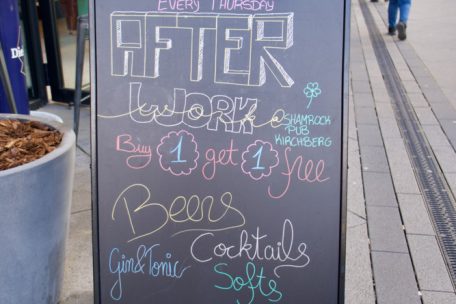 EVERY THURSDAY
AFTER
WORK @ SHAMROCK
PUB
KIRCHBERG
Buy 1 get 1 free
Beers
Cocktails
Gin&Tonic
Softs